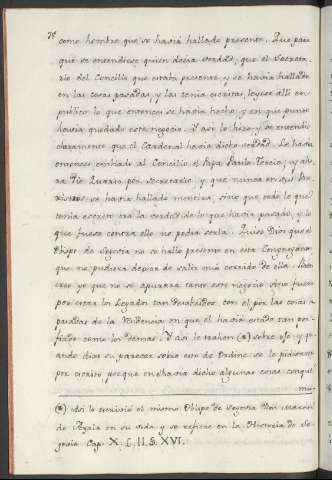 78
como hombre que se havia hallado presente. Que para
que se entendiese quien decia verdad, que el Secreta-
rio del Concilio que estaba presente, y se havia hallado
en las cosas pasadas, y las tenia escritas, leyese alli en
publico lo que entonces se havia hecho, y en que punto
havia quedado este negocio. Y asi lo hizo, y se entendio
claramente que el Cardenal havia dicho verdad. Le havia
entonces embiado al Concilio el Papa Paulo Tercio, y aho-
ra Pio Quarto por Secretario y que nunca en sus
se havia hallado mentira, sino que todo lo que
tenia escrito era la verdad de lo que havia pasado, y lo
que fuese contra ello no podia serlo. Quiso Dios que el
Obispo de Segovia no se halló presente en esta Congregacion
que no pudiera dejar de salir mui corrido de ella.
creo yo que no se apurará tanto este negocio sino fuera
por estar los Legados tan desabridos con el, por las cosas
pasadas de la Residencia en que el havia estado tan por-
fiado como los demas. Y asi le trahen (a) sobre ojo, y qu-
ando dixo su parecer sobre esto de Ordine se le pidieron
por escrito porque en el havia dicho algunas cosas, conque
mu-
(a) Asi lo escrivió el mismo Obispo de Segovia Don Martin
de Ayala en su vida y se refiere en la Historia de Se-
govia Cap. X. L. II. S. XVI.